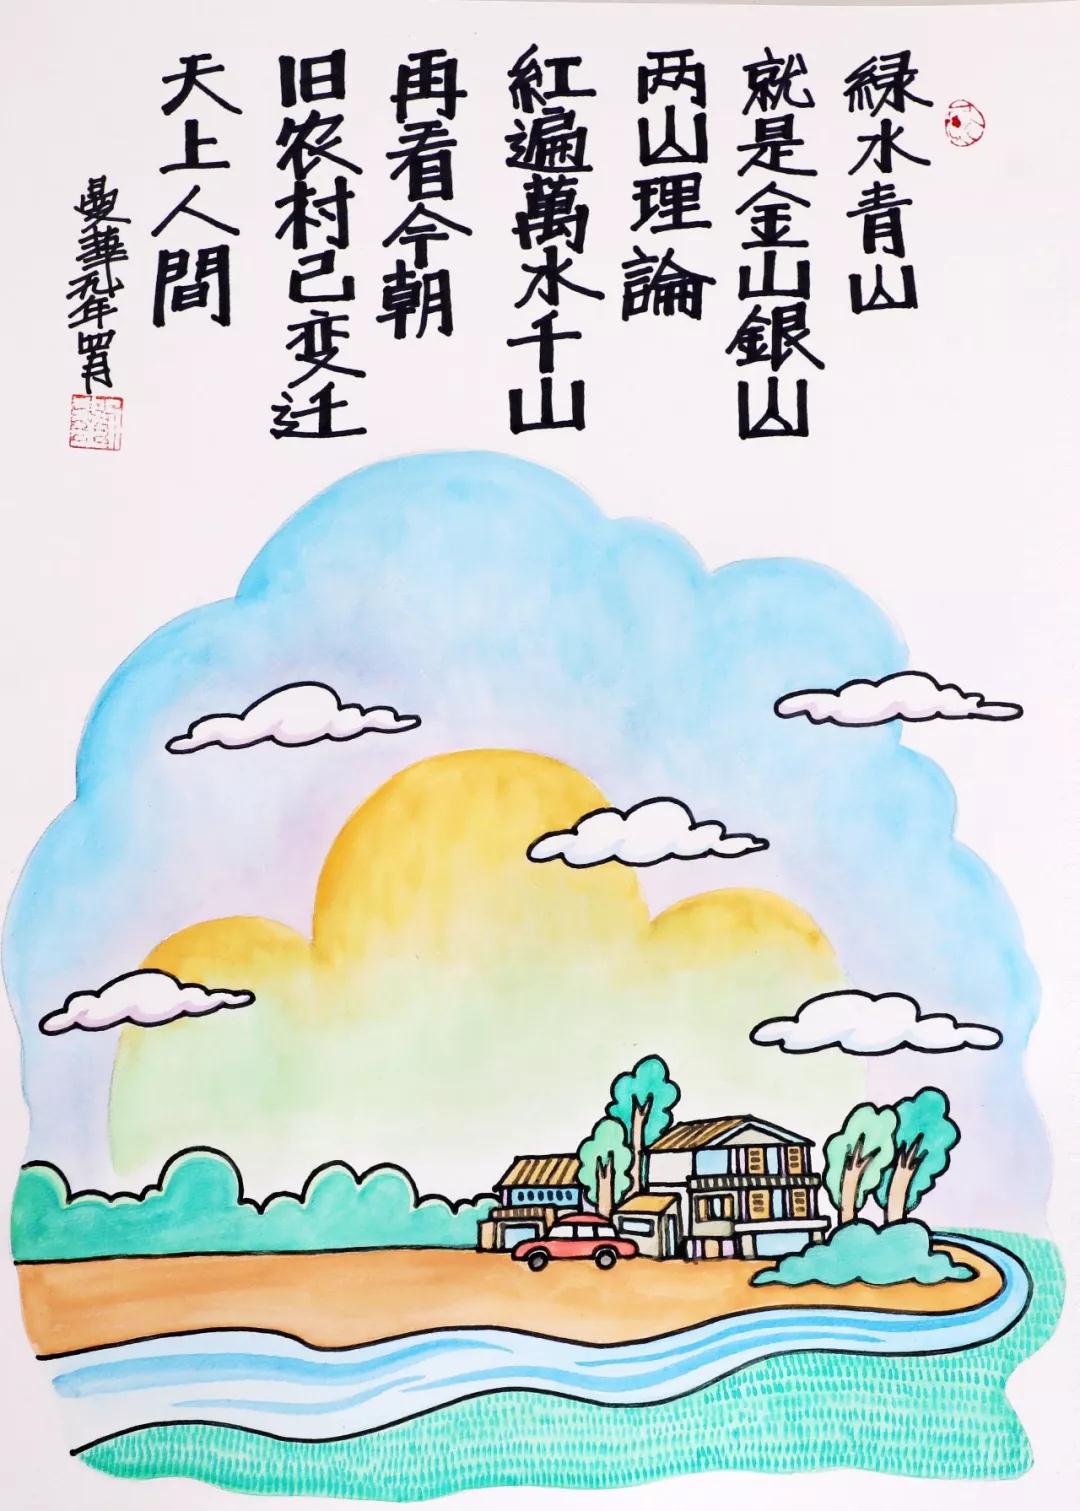 緑水青山
就是金山銀山
两山理論
紅遍萬水千山
再看今朝
旧农村已变迁
天上人間
曼華九年四月